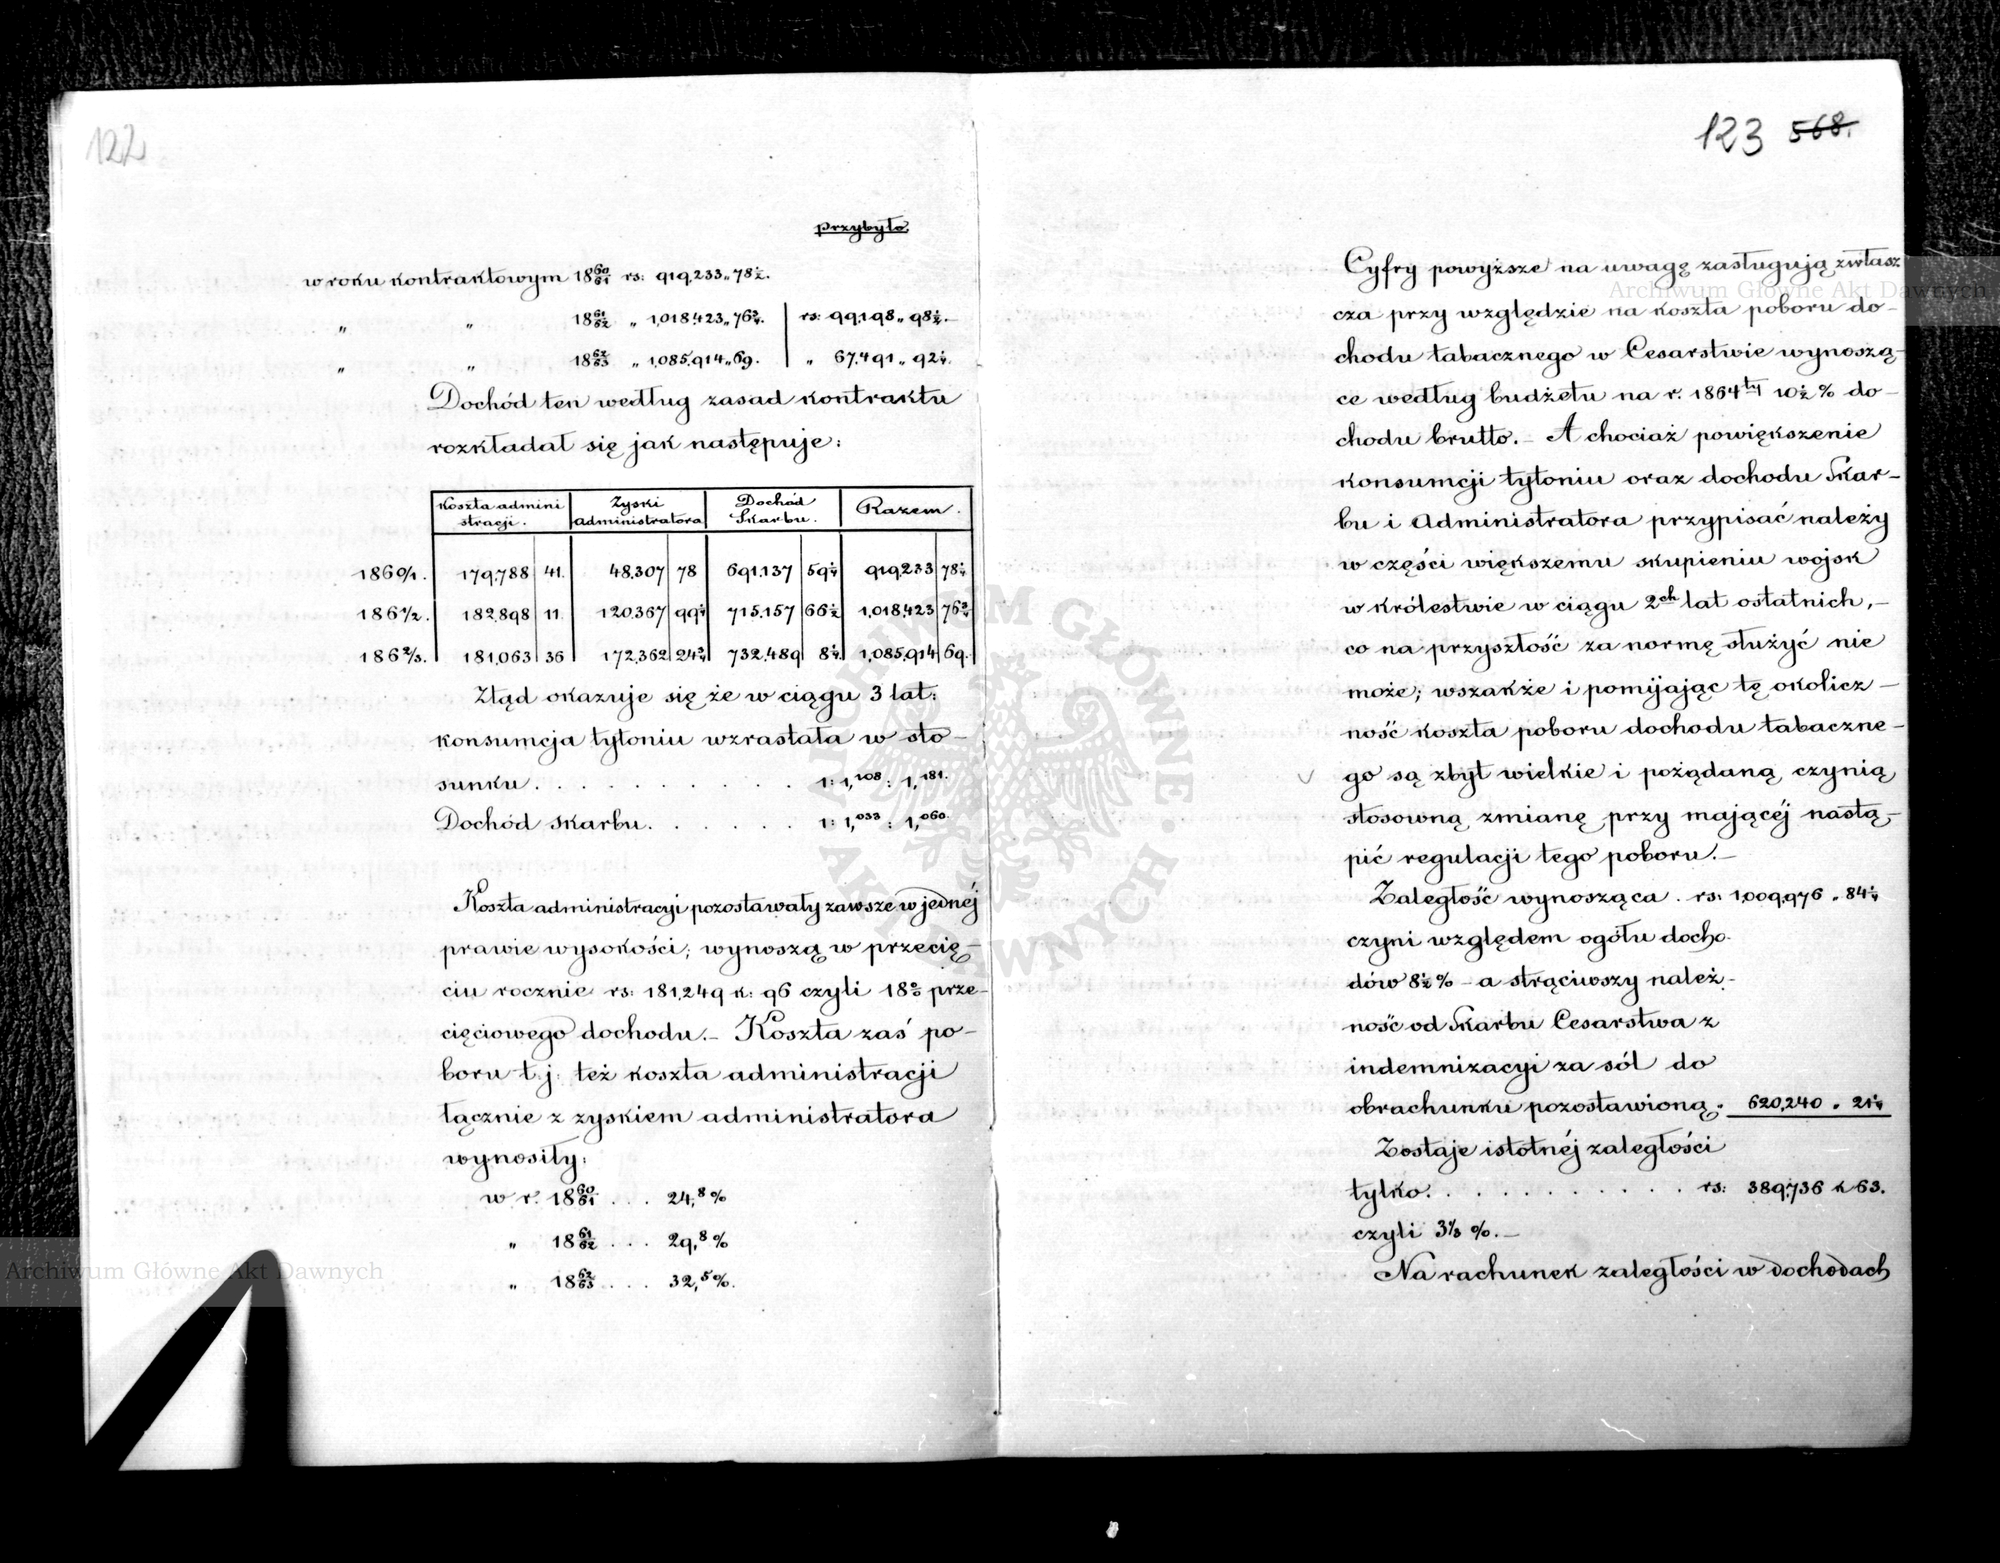 122
przybyło
w roku kontraktowym 18 60/61 rs: 919,233 „ 78 1/2.
„ „ 18 61/62 „ 1,018,423 „ 76 3/4. rs: 99,198 „ 98 1/2.—
„ „ 18 62/63 „ 1,085,914 „ 69. „ 67,491 „ 92 1/4.
Dochód ten według zasad kontraktu
rozkładał się jak następuje:
Koszta admini Zyski Dochód Razem.
stracji. administratora Skarbu.
1860/1. 179,788 41. 48,307 78 691,137 59 1/4 919,233 78 1/4
1861/2. 182,898 11. 120,367 99 1/4 715,157 66 1/2 1,018,423 76 3/4
1862/3. 181,063 36 172,362 24 3/4 732,489 8 1/4 1,085,914 69.
Ztąd okazuje się że w ciągu 3 lat:
konsumcja tytoniu wzrastała w sto-
sunku . . . . . . . . . . 1: 1,108 : 1,181.
Dochód skarbu. . . . . . 1: 1,033 : 1,060.
Koszta administracyi pozostawały zawsze w jednéj
prawie wysokości; wynoszą w przecię-
ciu rocznie rs: 181,249 k: 96 czyli 18% prze-
cięciowego dochodu.— Koszta zaś po-
boru t.j. też koszta administracji
łącznie z zyskiem administratora
wynosiły:
w r. 18 60/61 . . . 24,8 %
„ 18 61/62 . . . 29,8 %
„ 18 62/63 . . . 32,5 %.
123 568.
Cyfry powyższe na uwagę zasługują zwłasz
cza przy względzie na koszta poboru do-
chodu tabacznego w Cesarstwie wynoszą-
ce według budżetu na r. 1864ty 10 1/2 % do-
chodu brutto.— A chociaż powiększenie
konsumcji tytoniu oraz dochodu Skar-
bu i Administratora przypisać należy
w części większemu skupieniu wojsk
w królestwie w ciągu 2ch lat ostatnich,—
co na przyszłość za normę służyć nie
może; wszakże i pomijając tę okolicz-
ność koszta poboru dochodu tabaczne-
go są zbyt wielkie i pożądaną czynią
stosowną zmianę przy mającéj nastą-
pić regulacji tego poboru.—
Zaległość wynosząca . rs: 1,009,976 „ 84 1/4
czyni względem ogółu docho-
dów 8 1/2 % — a strąciwszy należ-
ność od Skarbu Cesarstwa z
indemnizacyi za sól do
obrachunku pozostawioną . 620,240 „ 21 1/4
Zostaje istotnéj zaległości
tylko. . . . . . . . . . . . rs: 389,736 k 63.
czyli 3 1/3 %.—
Na rachunek zaległości w dochodach
Archiwum Główne Akt Dawnych
Archiwum Główne Akt Dawnych
ARCHIWUM GŁÓWNE AKT DAWNYCH